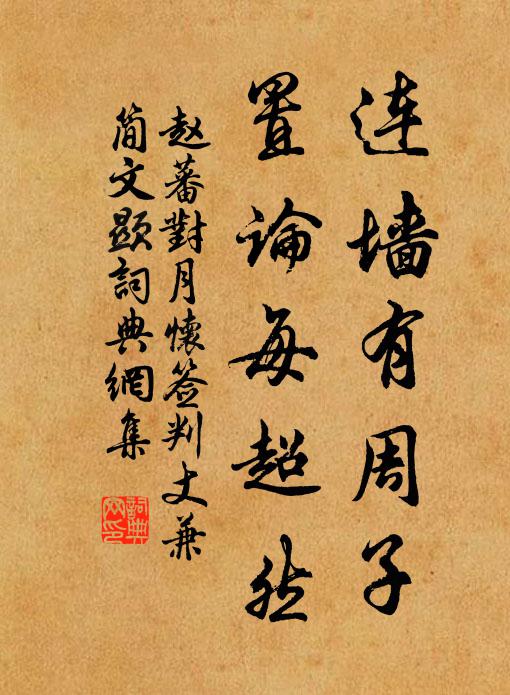 连墙有周子
置论每超然
赵蕃對月懷签判丈兼
简文顯詞典網集
詞典网印